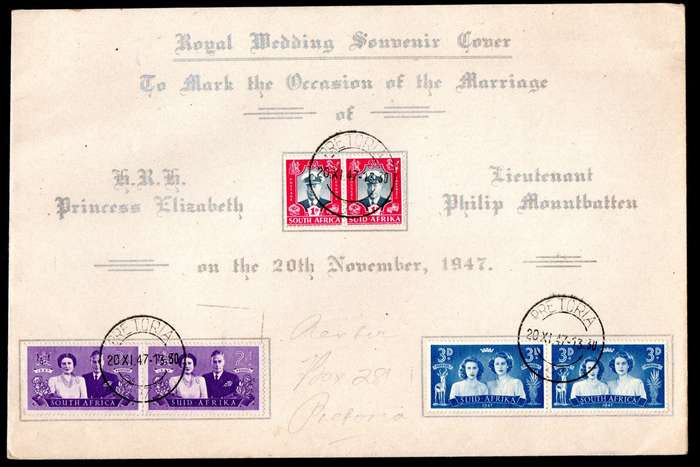 Royal Wedding Souvenir Cover
To Mark the Occasion of the Marriage
of
H.R.H.
Princess Elizabeth
Lieutenant
Philip Mountbatten
on the 20th November, 1947.
PRETORIA
20 XI 47-13.30
1D
SOUTH AFRICA
SUID AFRIKA
PRETORIA
20 XI 47-13.30
2D
SOUTH AFRICA
SUID AFRIKA
Box 281
Pretoria
PRETORIA
20 XI 47-13.30
3D
3D
3D
3D
SUID AFRIKA
1947
SOUTH AFRICA
1947